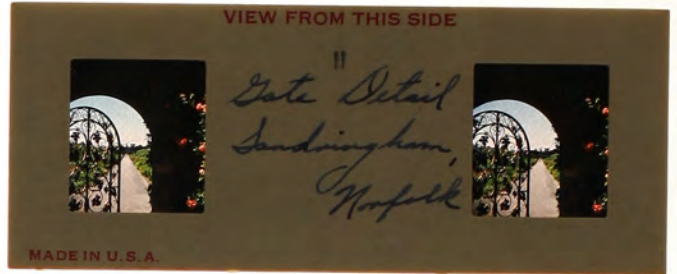 VIEW FROM THIS SIDE
11
Gate Detail
Sandringham,
Norfolk
MADE IN U.S.A.